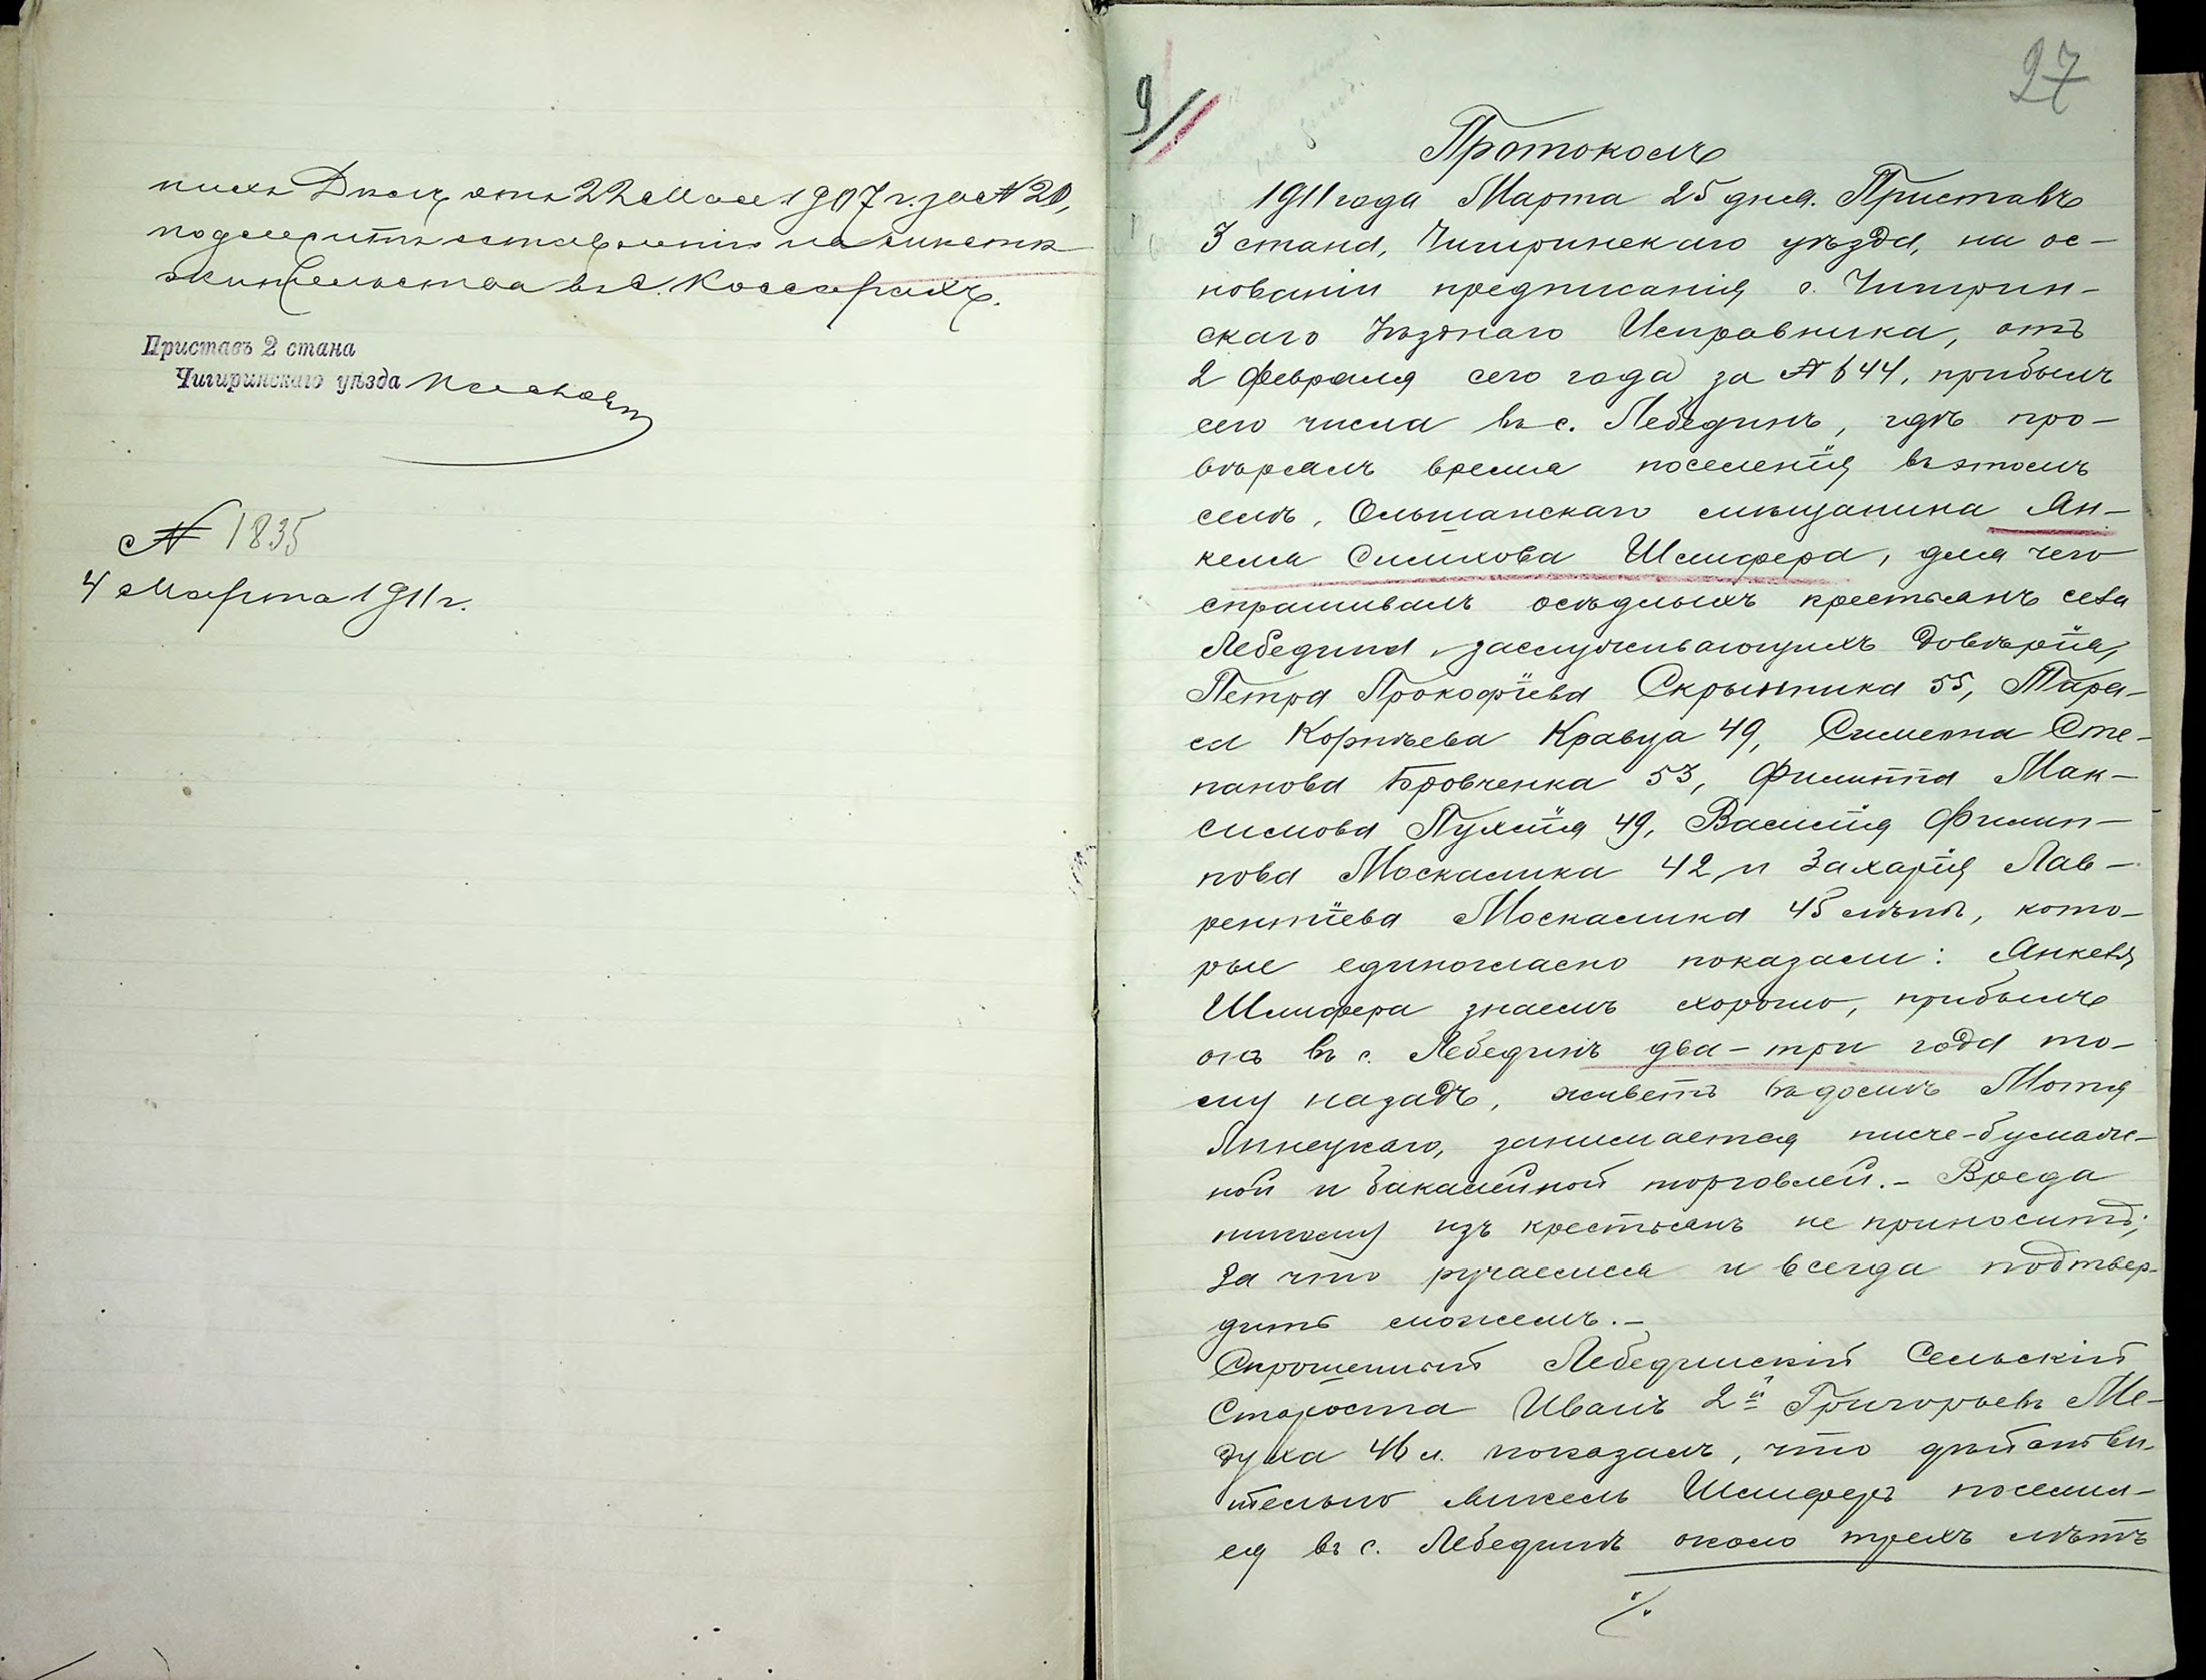 нихъ Дѣлъ отъ 22 Мая 1907 г. за № 20,
подлежитъ оставленію на мѣстѣ
жительства въ с. Коссарахъ.
Приставъ 2 стана
Чигиринскаго уѣзда
№ 1835
4 Марта 1911 г.
27
9
Протоколъ
1911 года Марта 25 дня. Приставъ
3 стана, Чигиринскаго уѣзда, на ос-
нованіи предписанія г. Чигирин-
скаго Уѣзднаго Исправника, отъ
2 февраля сего года за № 644, прибылъ
сего числа въ с. Лебединъ, гдѣ про-
вѣрялъ время поселенія въ этомъ
селѣ, Ольшанскаго мѣщанина Ян-
келя Симхова Шлифера, для чего
спрашивалъ осѣдлыхъ крестьянъ села
Лебедина, заслуживающихъ довѣрія,
Петра Прокофіева Скрыпника 55, Тара-
са Корнѣева Кравца 49, Симеона Сте-
панова Бровченка 53, Филиппа Мак-
симова Пухлія 49, Василія Филип-
пова Москалика 42 и Захарія Лав-
рентіева Москалика 45 лѣтъ, кото-
рые единогласно показали: Янкеля
Шлифера знаемъ хорошо, прибылъ
онъ въ с. Лебединъ два-три года то-
му назадъ, живетъ въ домѣ Мотя
Линецкаго, занимается писче-бумаж-
ной и бакалейной торговлей.- Вреда
никому изъ крестьянъ не приноситъ;
за что ручаемся и всегда подтвер-
дить можемъ.-
Спрошенный Лебединскій Сельскій
Староста Иванъ 2й Григорьевъ Ме-
духа 46 л. показалъ, что дѣйстви-
тельно Янкель Шлиферъ поселил-
ся въ с. Лебединѣ около трехъ лѣтъ
%